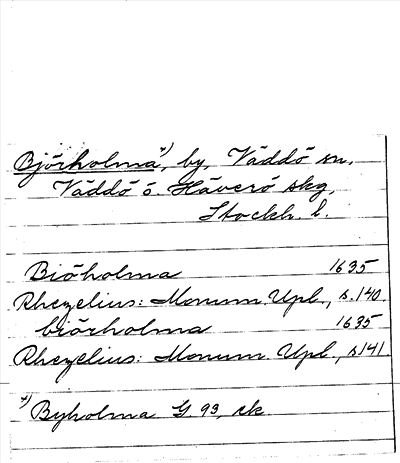 Björholma*), by, Väddö sn,
Väddö o. Häverö skg,
Stockh. l.
Biöholma 1635
Rhezelius: Monum. Upl., s. 140.
biörholma 1635
Rhezelius: Monum. Upl., s 141
*) Byholma G 93, ek.